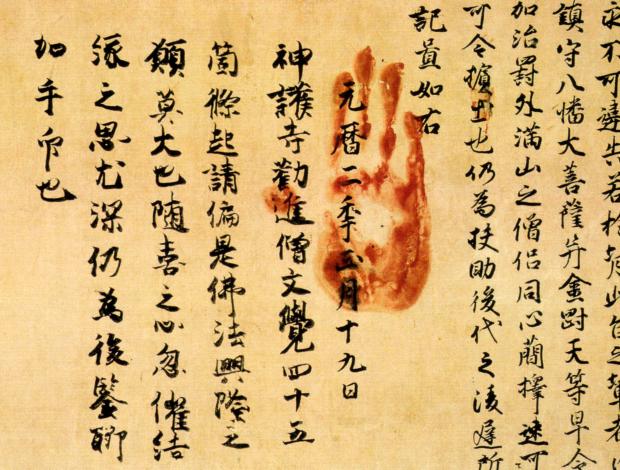 永不可違失若於背此旨之輩者
鎮守八幡大菩薩并金剛天等早令
加治罰外満山之僧侶同心簡擇速
可令擯出也仍為扶助後代之淩遅所
記置如右
元暦二季正月十九日
神護寺勸進僧文覺四十五
箇條起請偏是佛法興隆之
願莫大也随喜之心忽催結
縁之思尤深仍為後鑒聊
加手印也